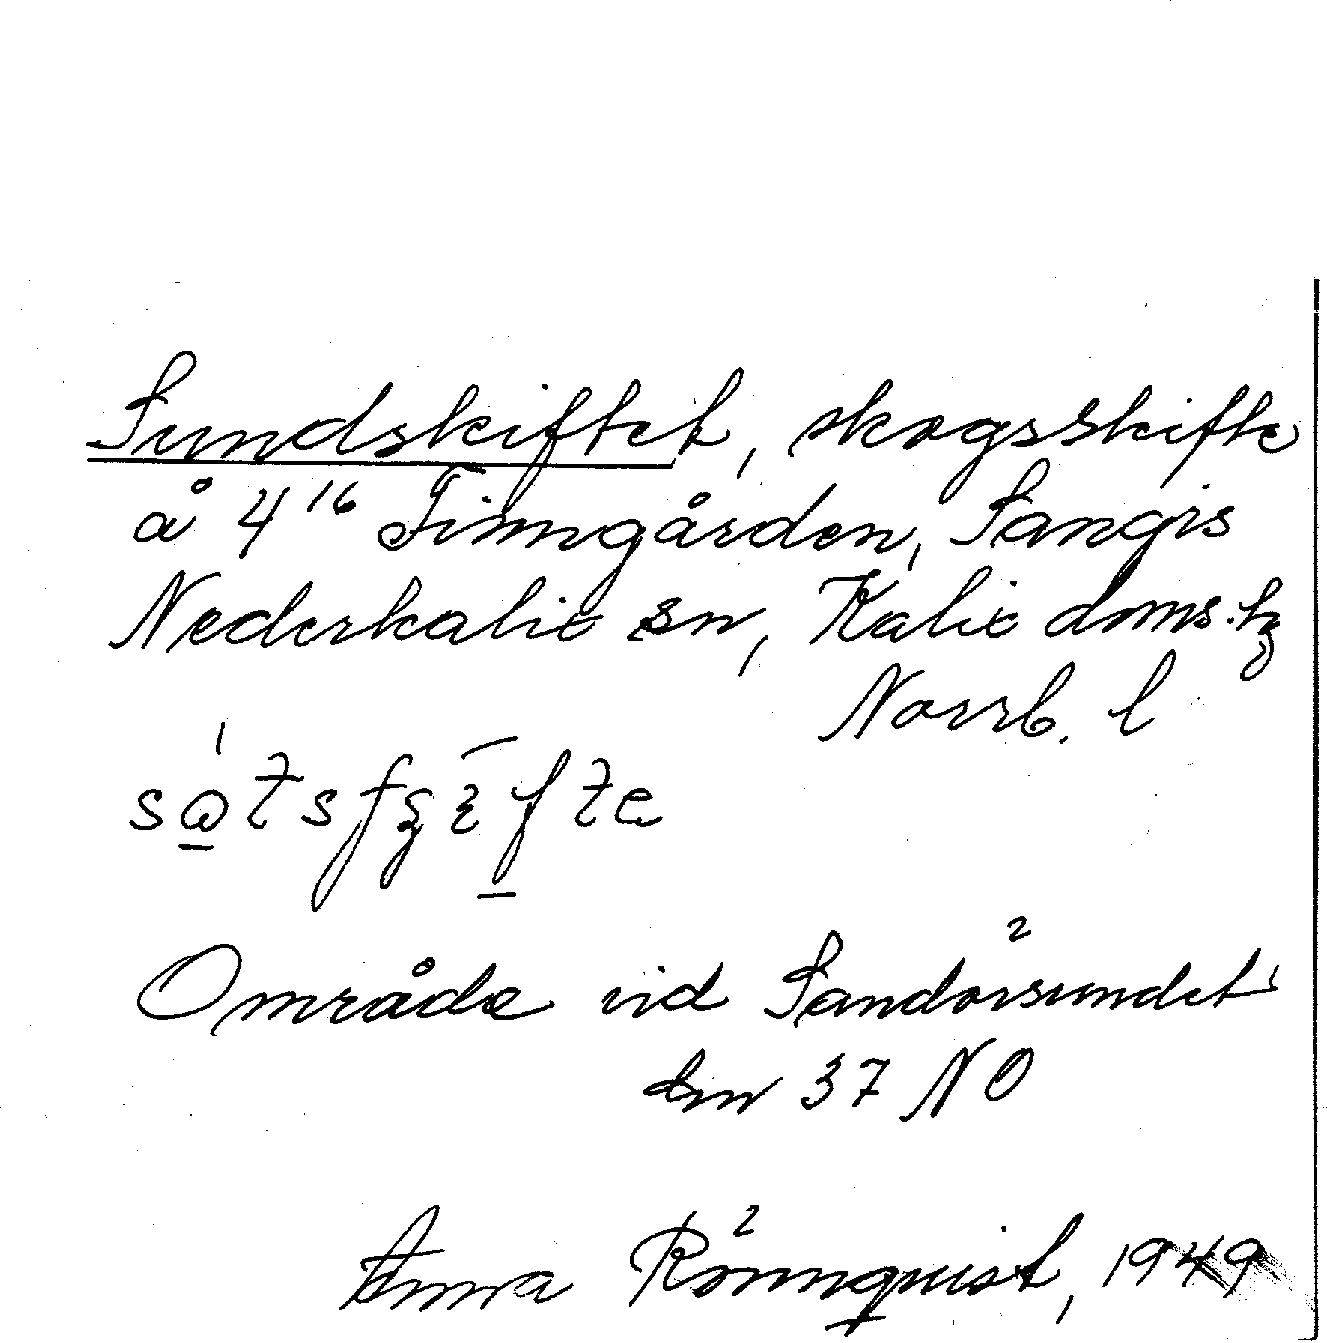 Sundskiftet, skogsskifte
å 4¹⁶ Finngården, Sangis
Nederkalix sn, Kalix doms. hg
Norrb. l
Område vid Sandörsundet
km 37 NO
Anna Rönnquist, 1949